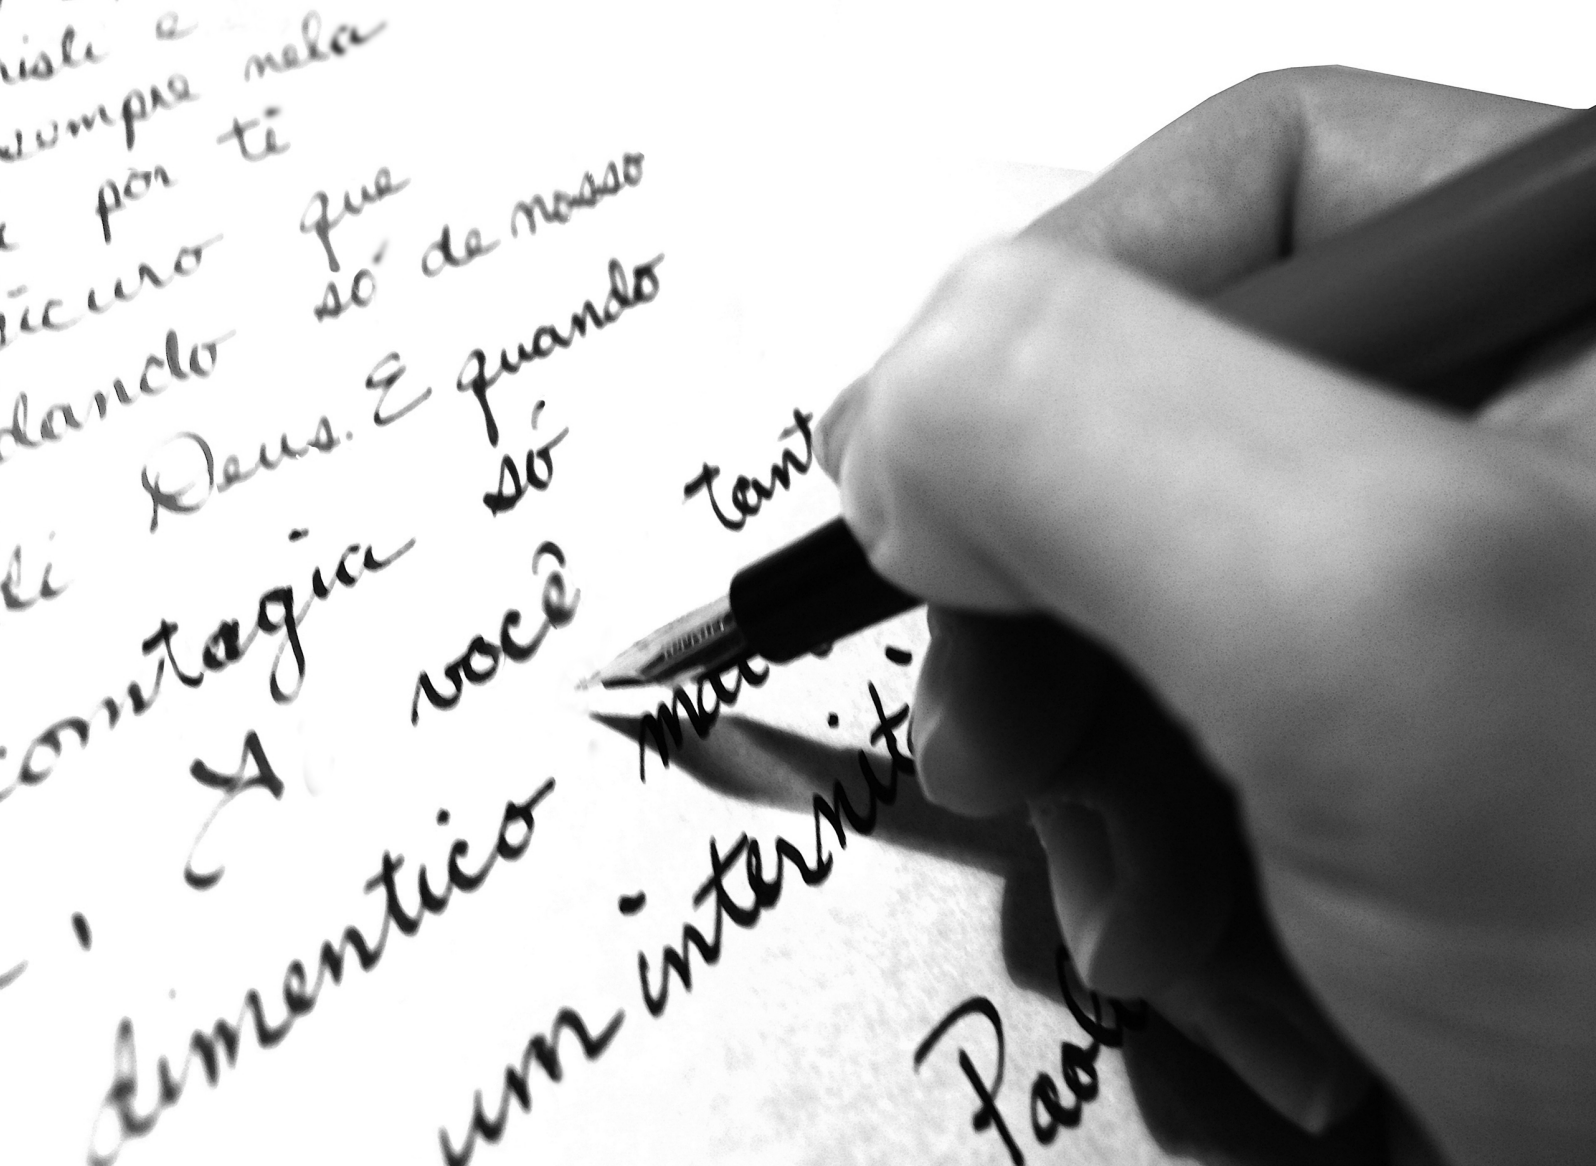 e
sempre nela
por ti
que
dando só de nosso
Deus. E quando
contagia só
você tant
A
dimentico mai
um internit
Paol